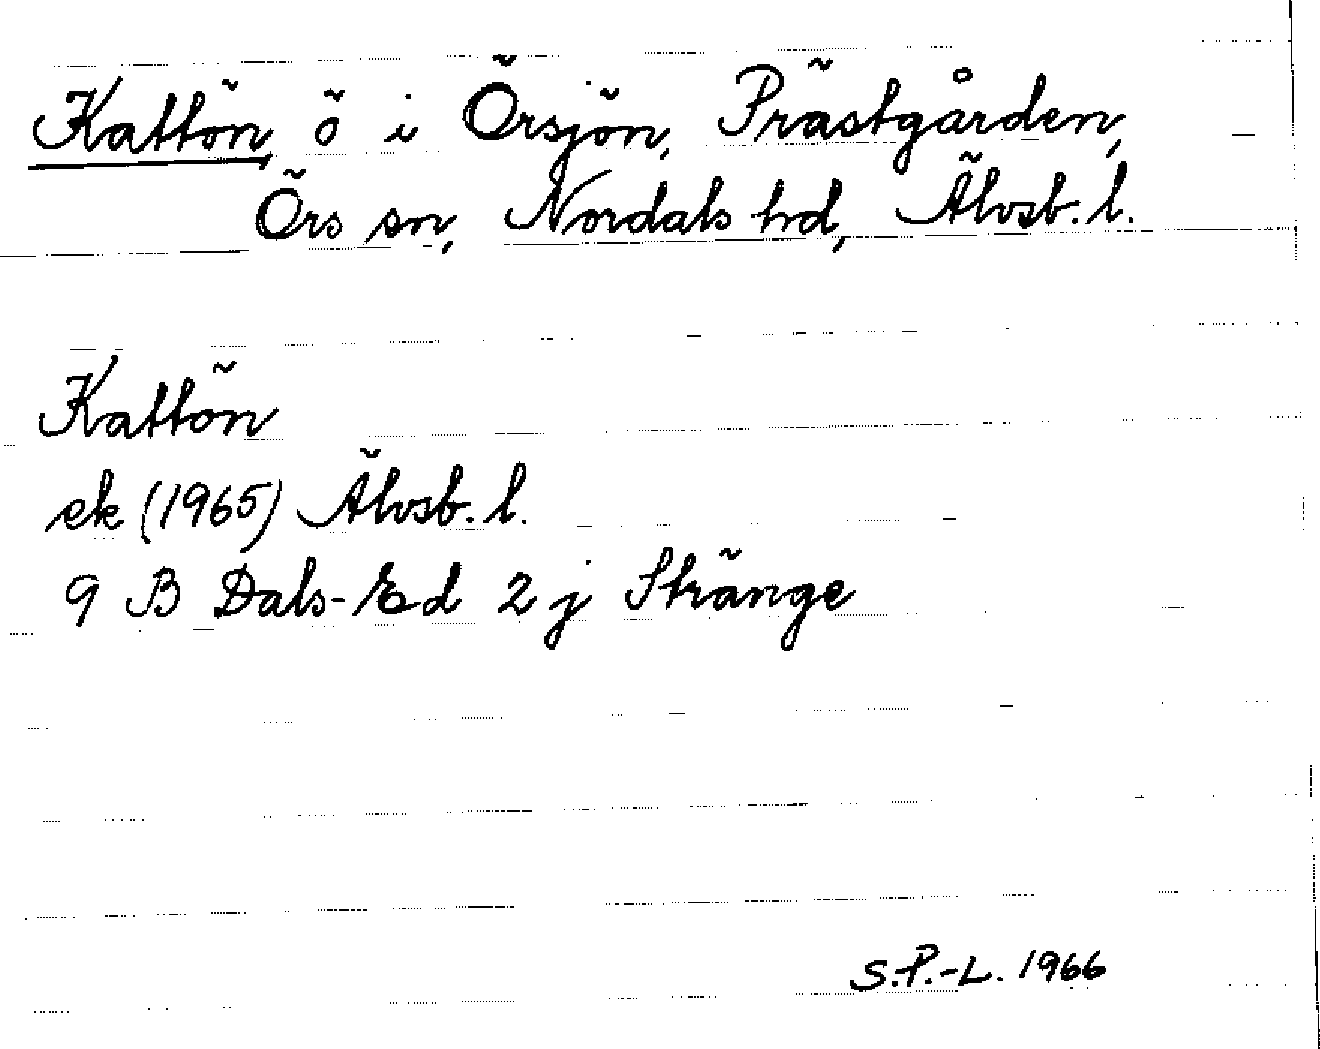 Kattön, ö i Örsjön, Prästgården,
Örs sn, Nordals hd, Älvsb. l.
Kattön
ek (1965) Älvsb. l.
9 B Dals-Ed 2 j Stränge
S.P.-L. 1966